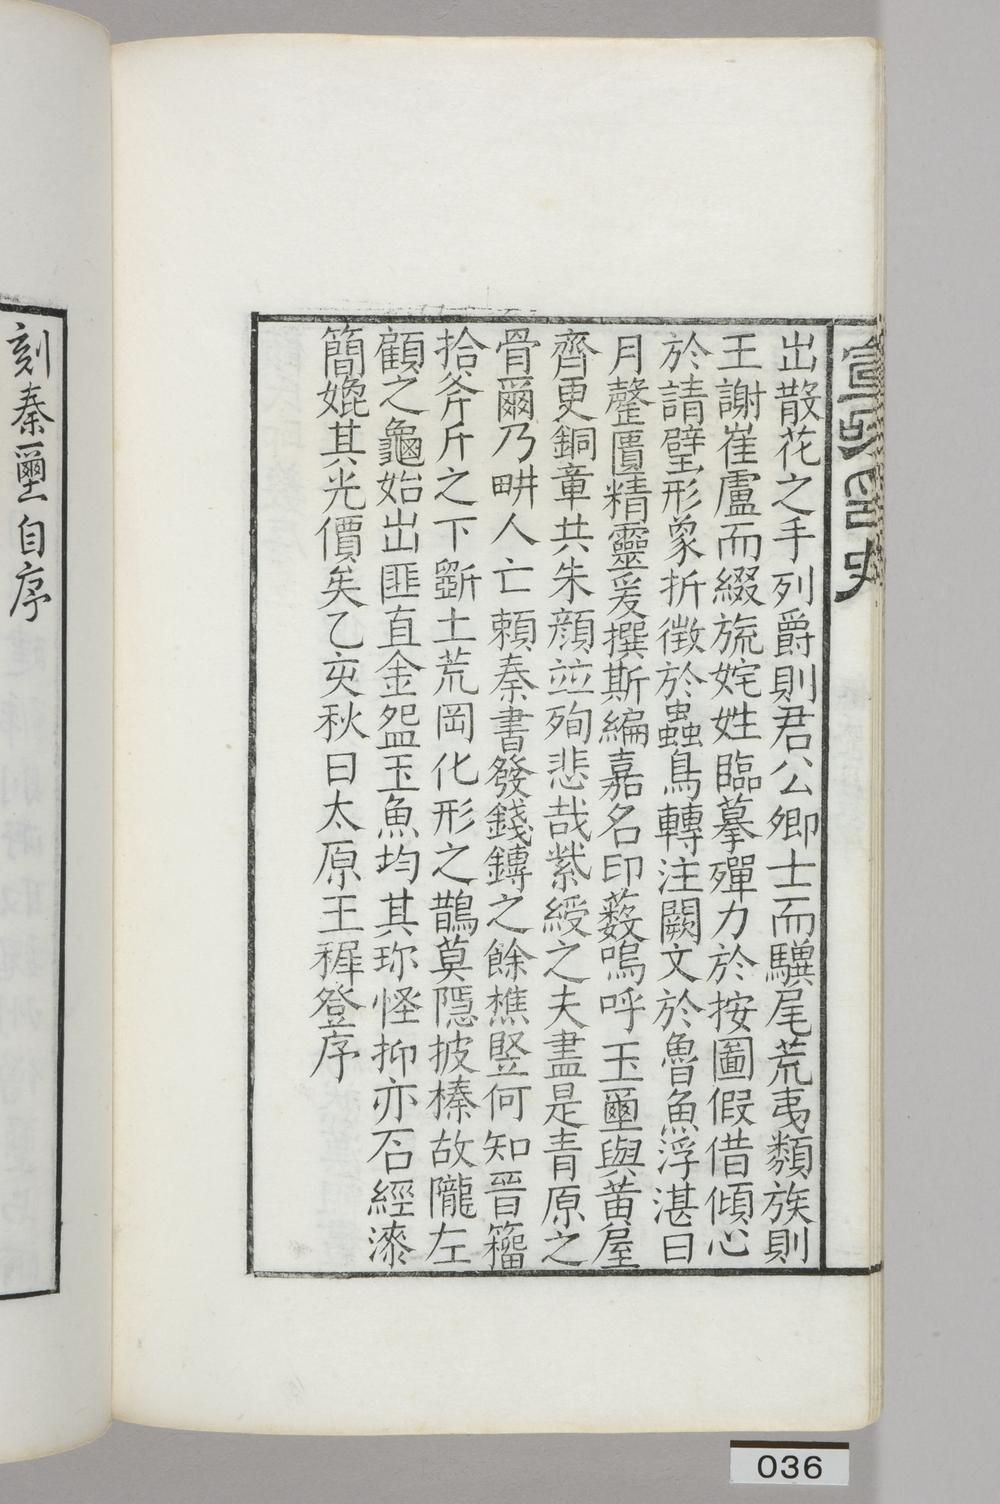 出散花之手列爵則君公卿士而驥尾荒夷類族則
王謝崔盧而綴旒姹姓臨摹殫力於按圖假借傾心
於請璧形象折徵於蟲鳥轉注闕文於魯魚浮湛曰
月罄匱精靈爰撰斯編嘉名印藪嗚呼玉璽與黃屋
齊更銅章共朱顏竝殉悲哉紫綬之夫盡是青原之
骨爾乃畊人亡賴秦書發錢鎛之餘樵豎何知晉籀
拾斧斤之下斲土荒岡化形之鵲莫隱披榛故隴左
顧之龜始出匪直金盌玉魚均其珎怪抑亦石經漆
簡媲其光價矣乙亥秋日太原王穉登序
刻秦璽自序